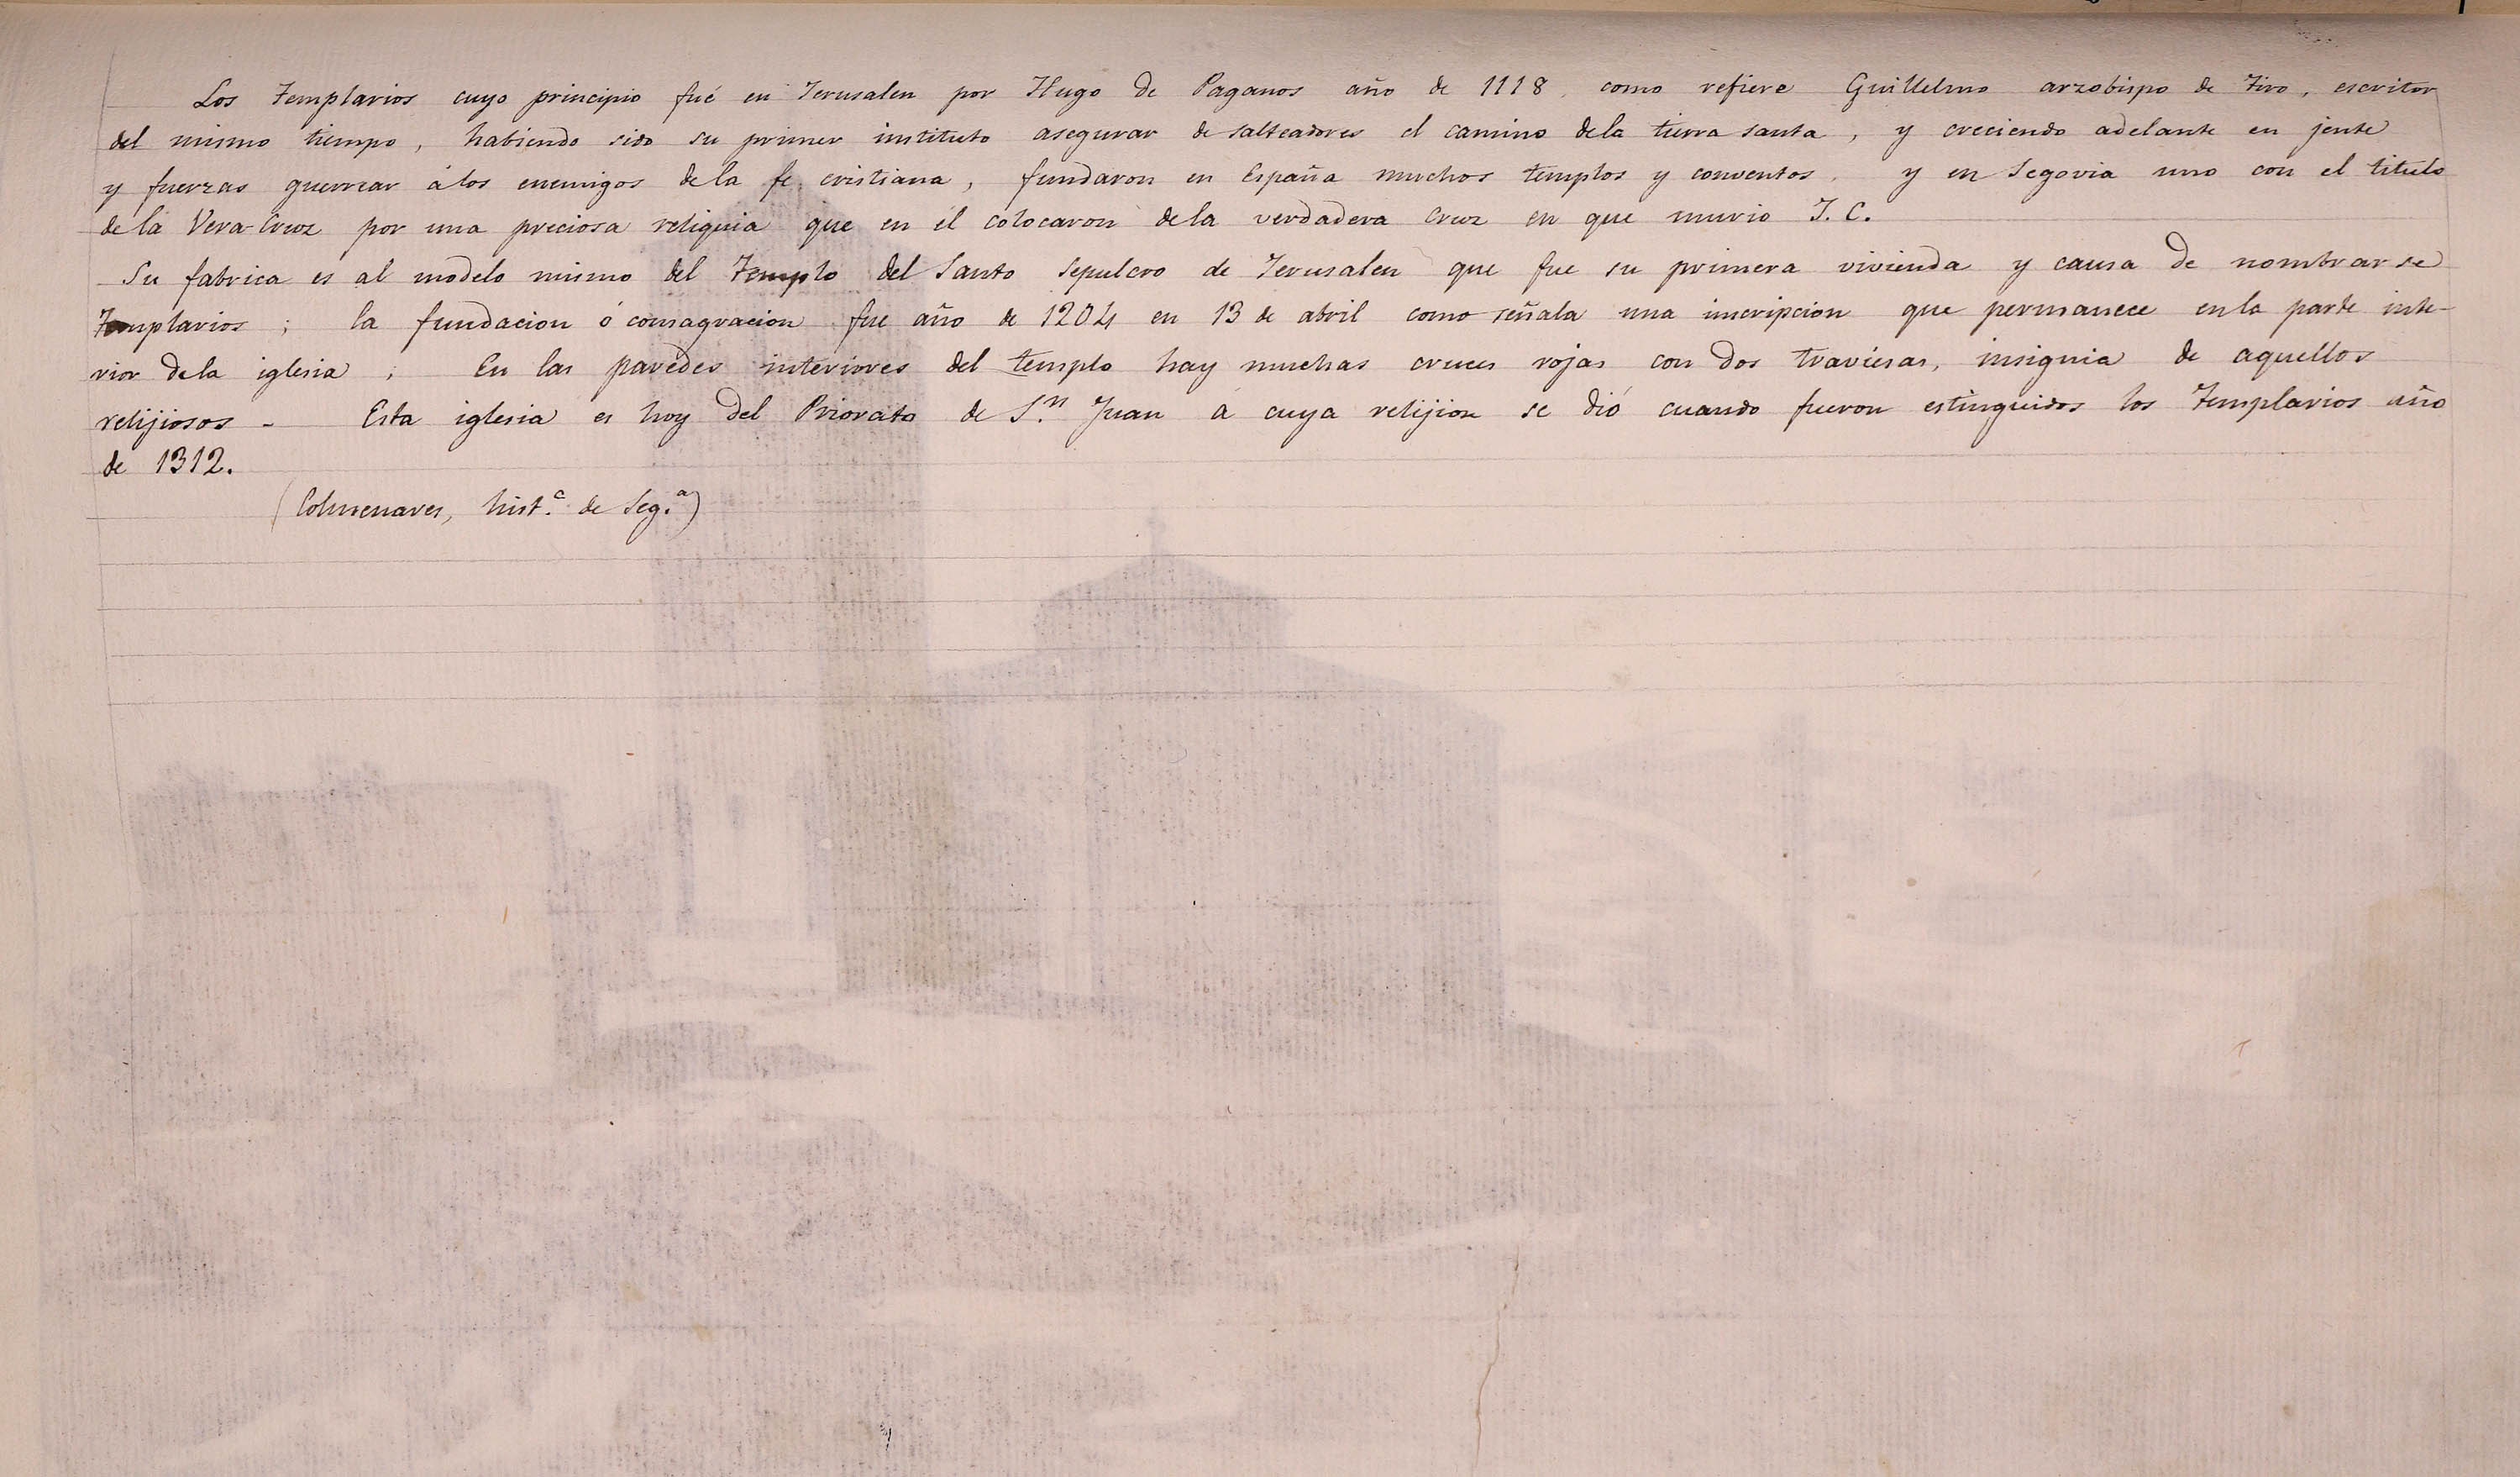 Los Templarios cuyo principio fué en Jerusalen por Hugo de Paganos año de 1118. como refiere Guillelmo arzobispo de Tiro, escritor
del mismo tiempo, habiendo sido su primer instituto asegurar de salteadores el camino dela tierra santa, y creciendo adelante en jente
y fuerzas guerrear álos enemigos dela fe cristiana, fundaron en España muchos templos y conventos. y en Segovia uno con el titulo
dela Vera-Cruz por una preciosa reliquia que en él colocaron dela verdadera Cruz en que murio J. C.
Su fabrica es al modelo mismo del Templo del Santo Sepulcro de Jerusalen que fue su primera vivienda y causa de nombrarse
Templarios; la fundacion ó consagracion fue año de 1204 en 13 de abril como señala una inscripcion que permanece enla parte inte-
rior dela iglesia; En las paredes interiores del templo hay muchas cruces rojas con dos traviesas, insignia de aquellos
relijiosos - Esta iglesia es hoy del Priorato de S.n Juan á cuya relijion se dió cuando fueron estinguidos los Templarios año
de 1312.
(Colmenares, hist.a de Seg.a)